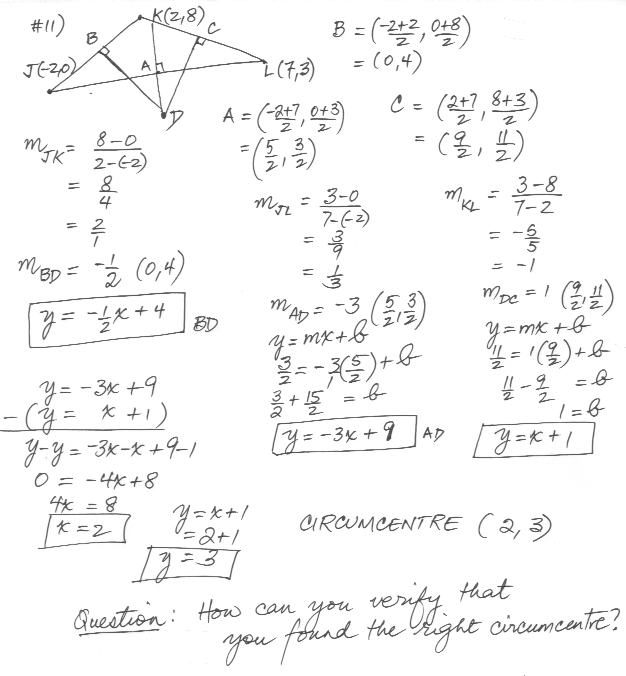 #11)
K(2,8)
B
C
J(-2,0)
A
L(7,3)
D
B = (-2+2/2, 0+8/2)
= (0,4)
A = (-2+7/2, 0+3/2)
= (5/2, 3/2)
C = (2+7/2, 8+3/2)
= (9/2, 11/2)
m_JK = 8-0/2-(-2)
= 8/4
= 2/1
m_BD = -1/2 (0,4)
y = -1/2x + 4 BD
m_JL = 3-0/7-(-2)
= 3/9
= 1/3
m_AD = -3 (5/2, 3/2)
y = mx + b
3/2 = -3/1(5/2) + b
3/2 + 15/2 = b
y = -3x + 9 AD
m_KL = 3-8/7-2
= -5/5
= -1
m_DC = 1 (9/2, 11/2)
y = mx + b
11/2 = 1(9/2) + b
11/2 - 9/2 = b
1 = b
y = x + 1
y = -3x + 9
-(y = x + 1)
y-y = -3x-x+9-1
0 = -4x+8
4x = 8
x = 2
y = x+1
= 2+1
y = 3
CIRCUMCENTRE (2,3)
Question: How can you verify that
you found the right circumcentre?